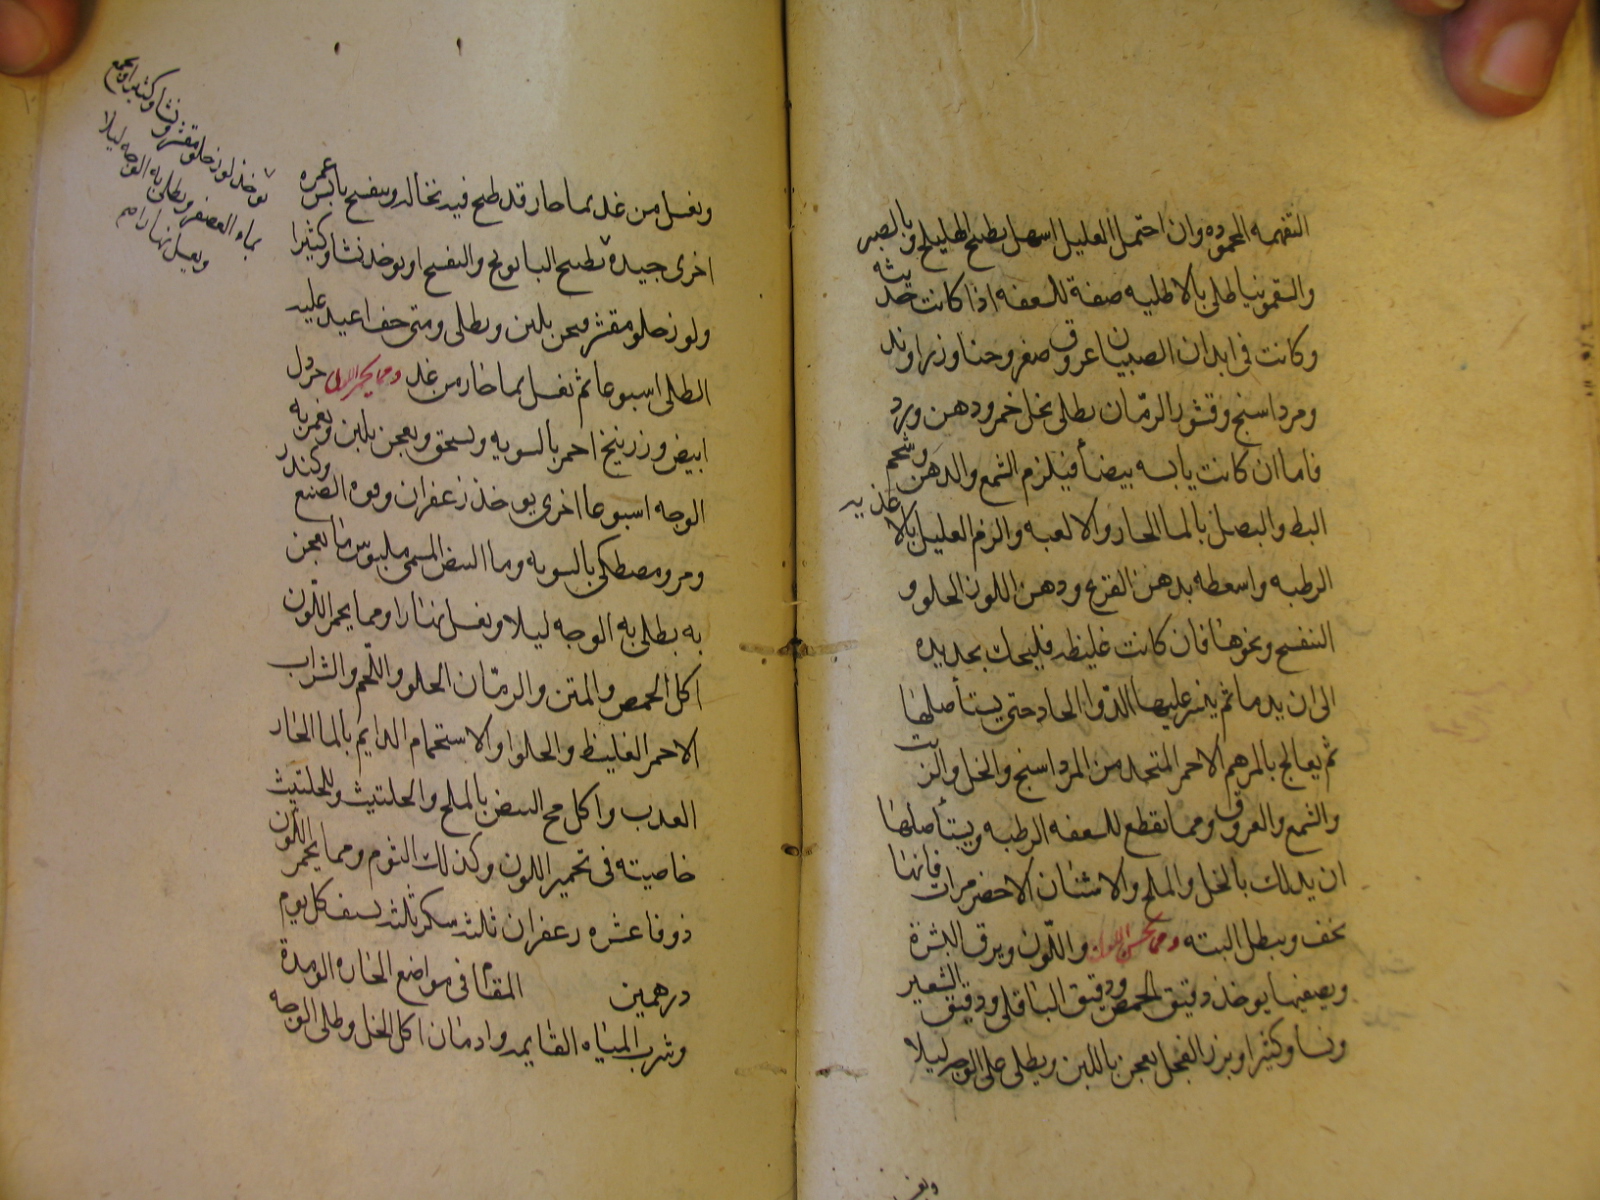 التفهمه المحموده وان احتمل العليل اسهل بطبيخ الهليلج وبالصبر
والسقمونيا طلى بالاطليه صفة للسعفه اذا كانت حديثه
وكانت في ابدان الصبيان عروق صفر وحنا وزراوند
ومرداسنج وقشور الرمّان يطلى بخل خمر ودهن ورد
فاما ان كانت يابسه بيضأ فيلزم الشمع والدهن وشحم
البط والبصل بالما الحار والالعبه والزم العليل بالاغذيه
الرطبه واسعطه بدهن القرع ودهن اللوز الحلو و
البنفسج ونحوها فان كانت غليظه فليحك بحديده
الى ان يدما ثم ينثر عليها الدّوا الحاد حتى يستأصلها
ثم يعالج بالمرهم الاحمر المتخذ من المرداسنج والخل والزيت
والشمع والعروق ومما يقطع للسعفه الرطبه ويستأصلها
ان يدلك بالخل والملح والاشنان الاخضر مرات فانها
تجف ويبطل البته ومما يحسن اللون واللّون ويرق البشرة
ويصفيها يوخذ دقيق الحمص ودقيق الباقلى ودقيق الشعير
ونسا وكثيرا وبزر الفجل يعجن باللبن ويطلى على الوجه ليلا
ويغسل من غد بما حار قد طبخ فيه نخاله وبنفسج يابس غمره
اخرى جيده بطبيخ البابونج والبنفسج او يوخذ نشا وكثيرا
ولوز حلو مقشر ويعجن بلبن ويطلى ومتى جف اعيد عليه
الطلى اسبوعا ثم يغسل بما حار من غد ومما يحمر اللون خردل
ابيض وزرنيخ احمر بالسويه ويسحق ويعجن بلبن ويغمر به
الوجه اسبوعا اخرى يوخذ زعفران وفوه الصبغ وكندر
ومر ومصطكى بالسويه وما البيض المسمى ملبوس ما يعجن
به يطلى به الوجه ليلا ويغسل نهارا ومما يحمر اللّون
اكل الحمص والمتن والرمّان الحلو واللّحم والشراب
الاحمر الغليظ والحلوا والاستحمام الدايم بالما الحار
العذب واكل مح البيض بالملح والحلتيث وللحلتيث
خاصيته في تحمير اللون وكذلك الثوم ومما يحمر اللّون
زوفا عشره زعفران ثلثه سكر ثلثه يسف كل يوم
درهمين المقام في مواضع الحاره الومدة
وشرب المياه القايمه وادمان اكل الخل وطلى الوجه
يوخذ لوز حلو مقشر ونشا وكثيرا ويجمع
بماء العصفر ويطلى به الوجه ليلا
ويغسل نهارا